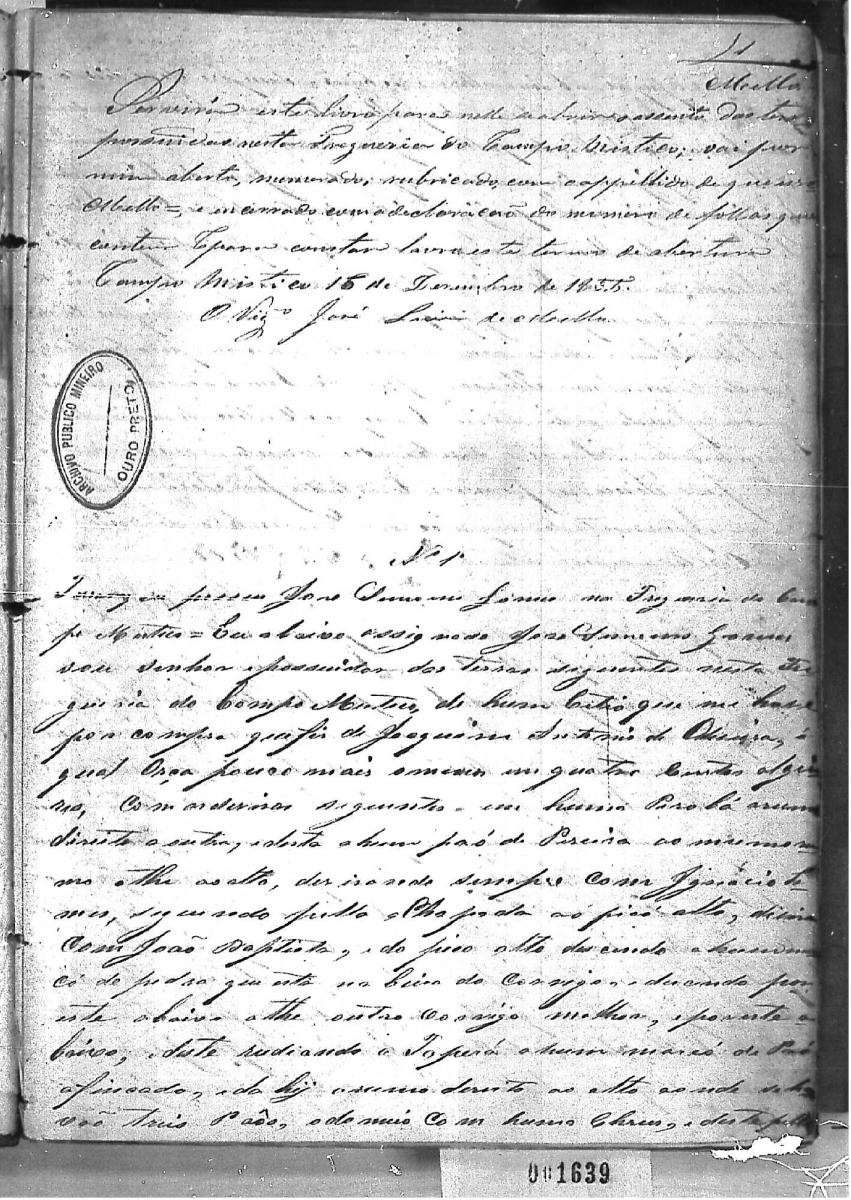 1
Mello
Servirá este livro para nelle se abrir o assento das terras
possuidas nesta Freguezia do Campo Mistico; vai por
mim aberto, numerado, rubricado, com o appellido de que uso
Mello = e encerrado com a declaração do numero de folhas que
contem E para constar lavrei este termo de abertura
Campo Mistico 16 de Dezembro de 1855.
O Vigº José de Mello
ARCHIVO PUBLICO MINEIRO
OURO PRETO
Nº 1º
possue Jose Gomes na Freguezia do Cam
po Mistico = Eu abaixo assignado Jose Gomes
sou senhor e possuidor das terras seguintes nesta Fre
guezia do Campo Mistico, de hum Citio que me houve
por compra que fis de Joaquim Antonio de Oliveira, o
qual orça pouco mais o menos em quatro centos alquei
res, com as devizas seguintes em huma Perobá a rumo
direito a outra, e desta a hum paó de Pereira ao mesmo
rumo athe ao alto, devizando sempre com Ignacio
seguindo pella Chapada ao pico alto, diviza
com João Baptista, e do pico alto descendo a hum mar
có de pedra que está na beira do Corrigo, e descendo por
este abaixo athe outro Corrigo melhor, e por este a
baixo, e deste rodiando a Taperá a hum marcó de Paó
afincado, e da hy a rumo direito ao alto aonde se ha
vaõ tres Paôs, o do meio com huma Crus, e desta pella
001639